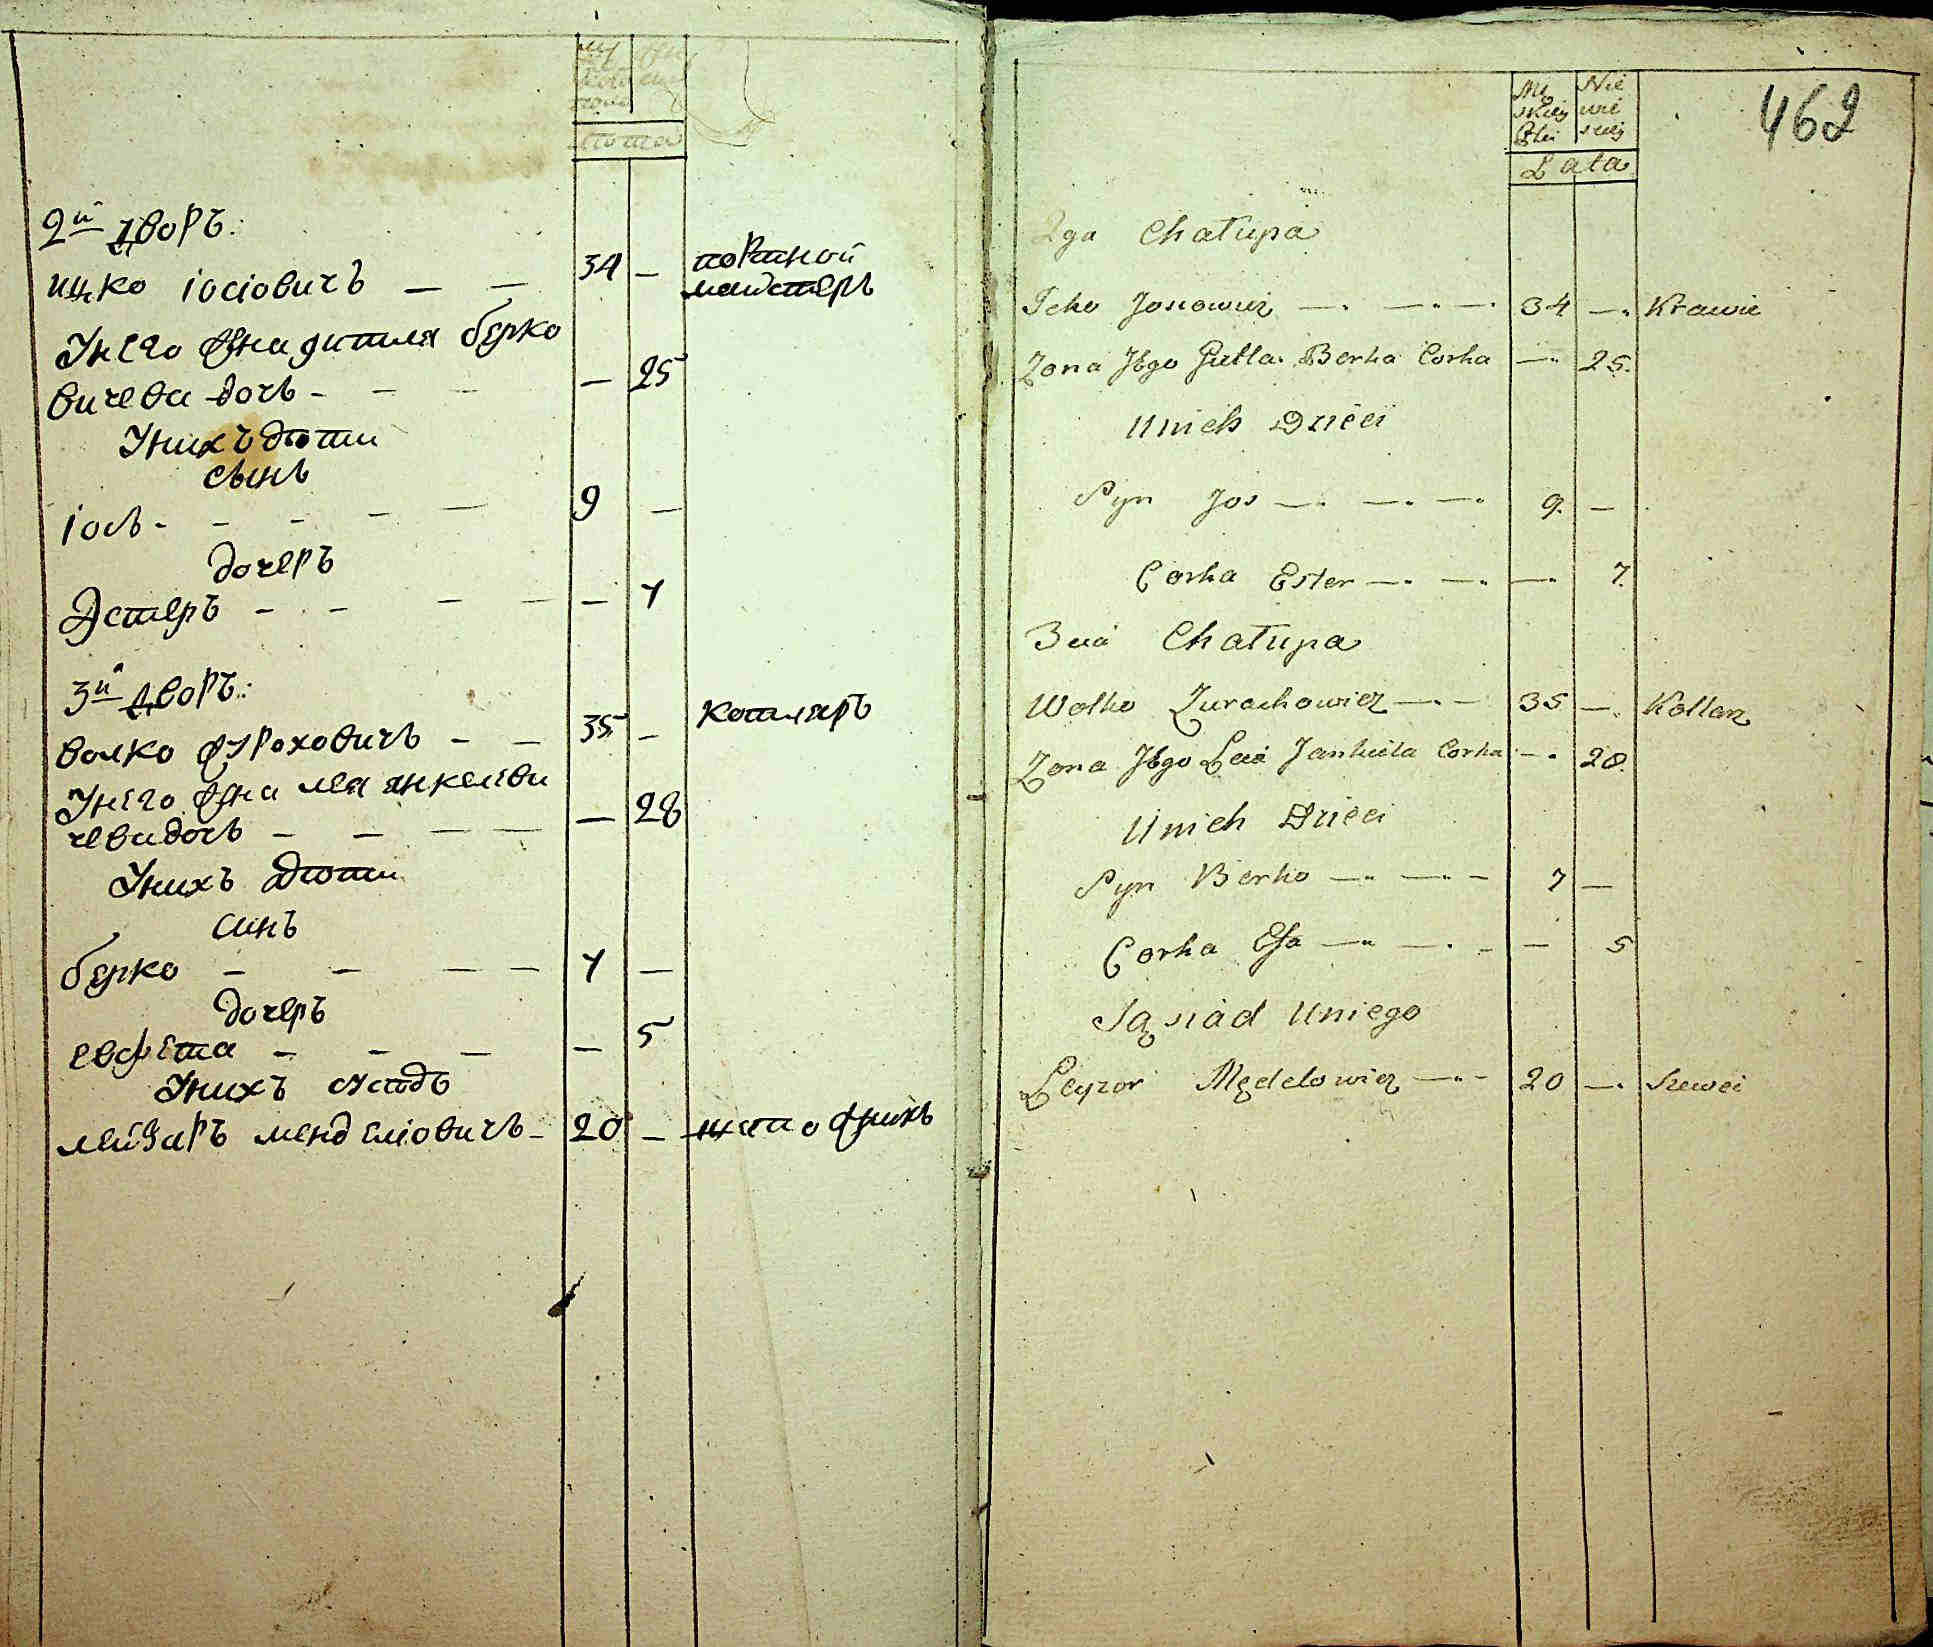 лѣта
2й дворъ:
ицко іосіовичъ — — 34 — портной
майстеръ
У него жена гитля берко
вичева дочь - — — — 25
У нихъ дѣти
сынъ
іось - - - — — 9 —
дочеръ
Эстеръ - - — — — 7
3й дворъ:
волко журоховичъ - — 35 — котляръ
У него жена лея янкелеви
чева дочь — — — — — 28
У нихъ дѣти
синъ
берко — — — — 7 —
дочеръ
евфета — — — — 5
У нихъ сусѣдъ
лейзаръ менделіовичъ - 20 —
462
Mę Nie
skiey wie
Płci sciey
Lata
2ga Chałupa
Icko Josiowicz — — — 34 — Krawie
Zona Jego Gutla Berka Corka — 25.
U nich Dzieci
Syn Jos — — — 9. —
Corka Ester — — — 7.
3cia Chałupa
Wolko Zurachowicz — — 35 — Kotlarz
Zona Jego Leia Jankiela Corka — 28.
U nich Dzieci
Syn Berko — — — 7 —
Corka Efa — — - — 5
Sąsiad U niego
Leyzor Mędelowicz — - 20 — Szewci